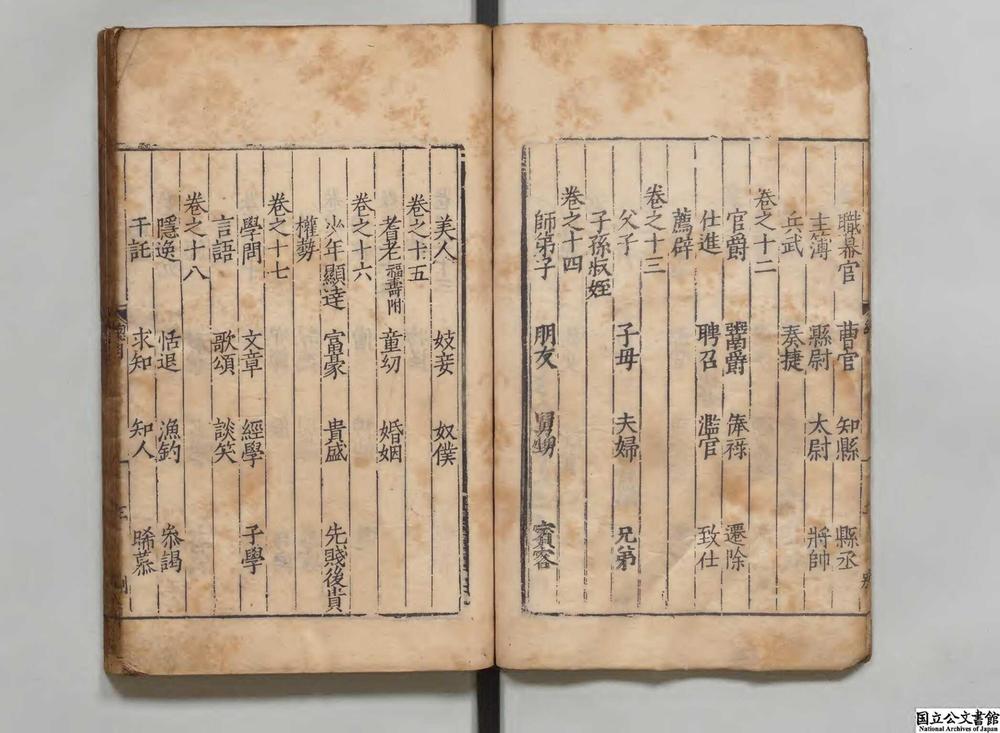 職幕官 曹官 知縣 縣丞
主薄 縣尉 太尉 將帥
兵武 奏捷
卷之十二
官爵 鬻爵 俸祿 遷除
仕進 聘召 濫官 致仕
薦辟
卷之十三
父子 子母 夫婦 兄弟
子孫叔姪
卷之十四
師第子 朋友 舅甥 賓客
美人 妓妾 奴僕
卷之十五
耆老福壽附 童幼 婚姻
卷之十六
少年顯達 富豪 貴盛 先賤後貴
權勢
卷之十七
學問 文章 經學 子學
言語 歌頌 談笑
卷之十八
隱逸 恬退 漁釣 叅謁
干託 求知 知人 晞慕
国立公文書館
National Archives of Japan